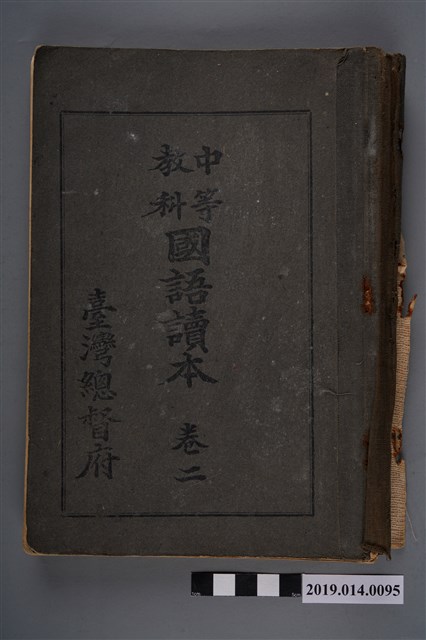 中等
教科
國語讀本
卷二
臺灣總督府
2019.014.0095